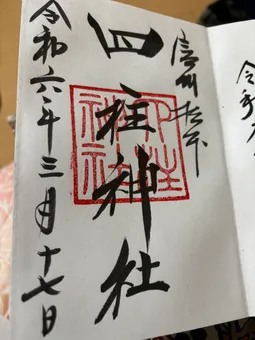 信州松本
四柱神社
四柱神社
令和六年三月十七日
令和